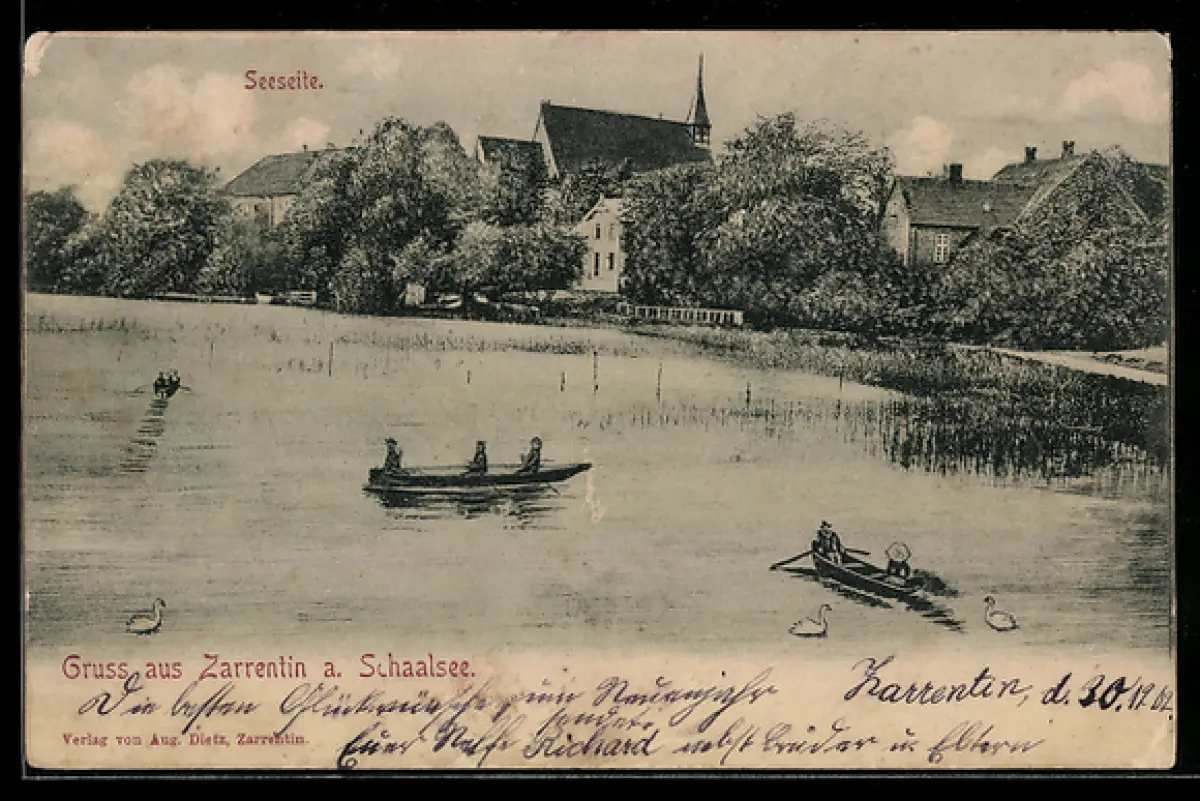 Seeseite.
Gruss aus Zarrentin a. Schaalsee.
Zarrentin, d. 30/12.02.
Die besten Glückwünsche zum Neuenjahr
sendet
Verlag von Aug. Dietz, Zarrentin.
Euer Neffe Richard nebst Brüder u. Eltern